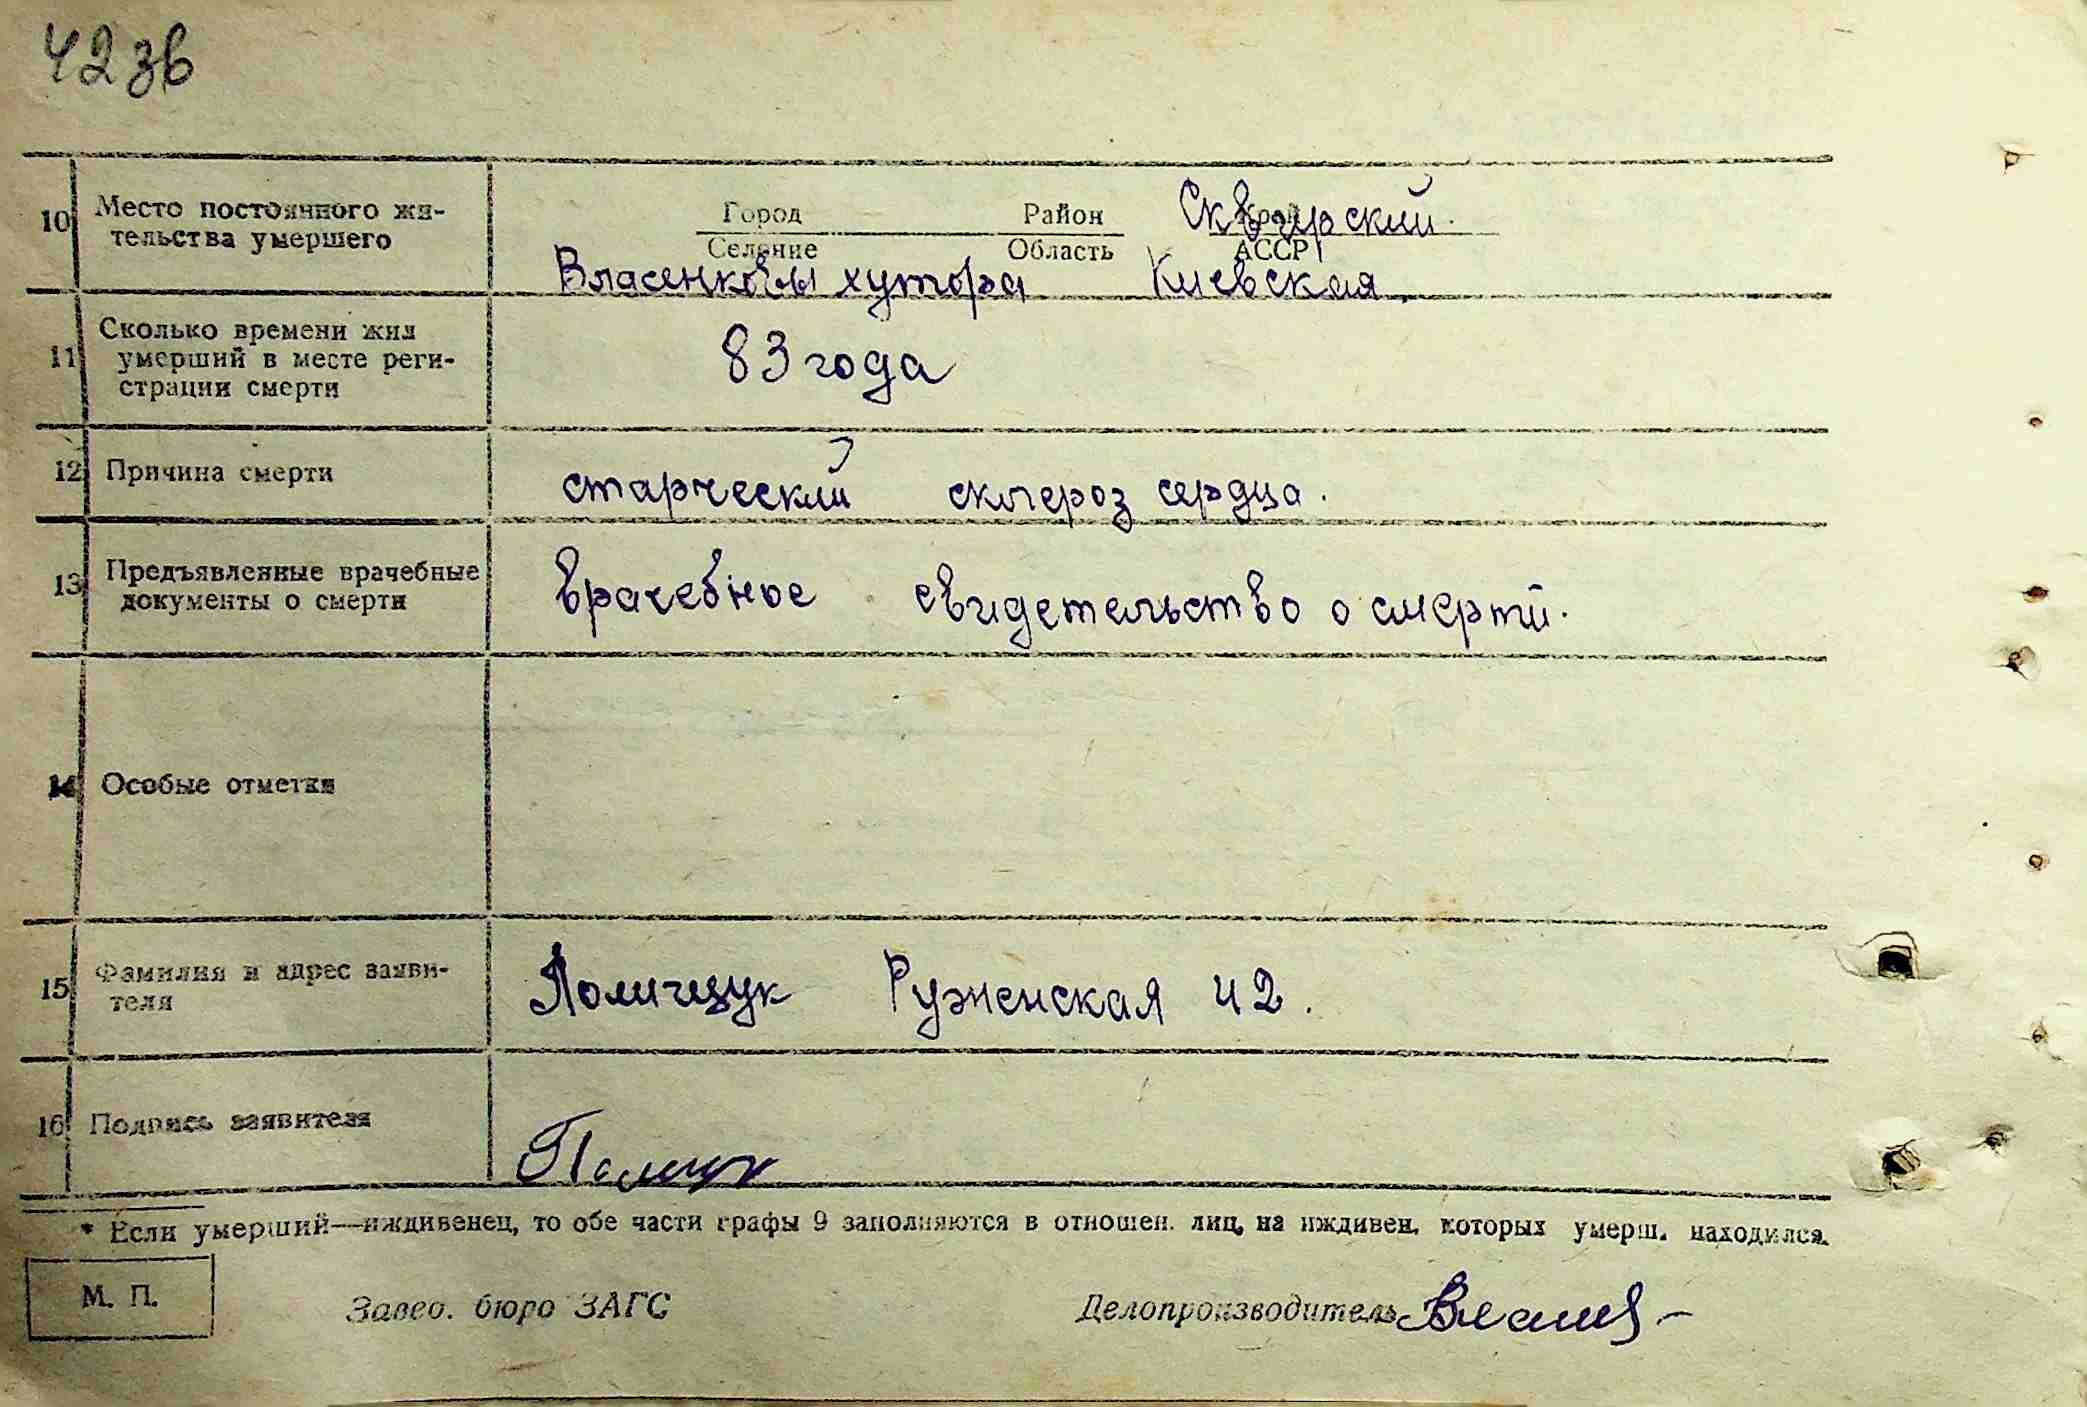 42 зв
10 Место постоянного жи-
тельства умершего
Город Район Край Сквирский.
Селение Область АССР
Власенковы хутора Киевская
11 Сколько времени жил
умерший в месте реги-
страции смерти
83 года
12 Причина смерти старческий склероз сердца.
13 Предъявленные врачебные
документы о смерти
врачебное свидетельство о смерти.
14 Особые отметки
15 Фамилия и адрес заяви-
теля
Полищук Руженская 42.
16 Подпись заявителя
* Если умерший—иждивенец, то обе части графы 9 заполняются в отношен. лиц, на иждивен. которых умерш. находился.
М. П. Завед. бюро ЗАГС Делопроизводитель